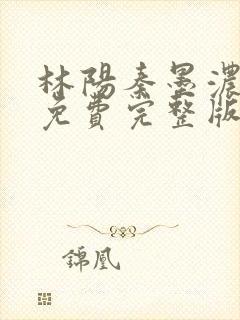 林陽秦墨濃
免費完整版
錦凰